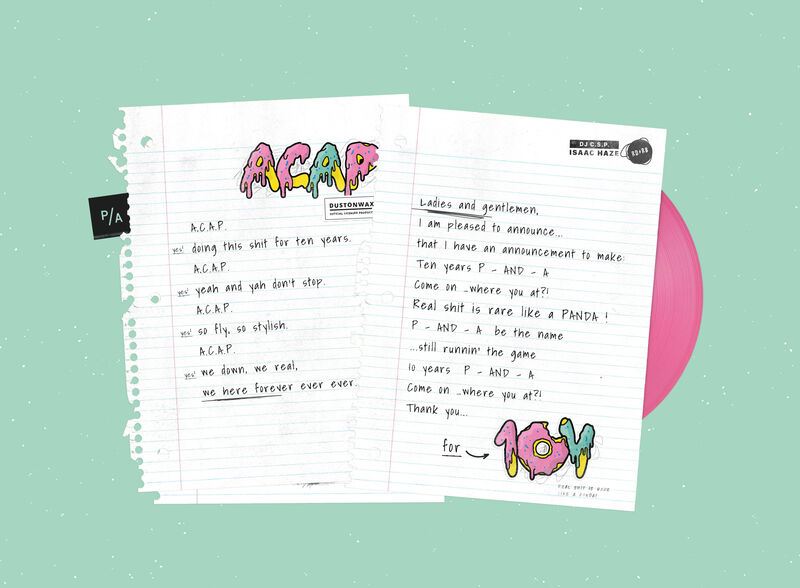 P/A
ACAP
DUSTONWAX
OFFICIAL LICENSED PRODUCT
A.C.A.P.
yes! doing this shit for ten years.
A.C.A.P.
yes! yeah and yah don't stop.
A.C.A.P.
yes! so fly, so stylish.
A.C.A.P.
yes! we down, we real,
we here forever ever ever.
DJ C.S.P.
ISAAC HAZE
Ladies and gentlemen,
I am pleased to announce...
that I have an announcement to make:
Ten years P - AND - A
Come on ...where you at?!
Real shit is rare like a PANDA!
P - AND - A be the name
...still runnin' the game
10 years P - AND - A
Come on ...where you at?!
Thank you...
for
10Y
REAL SHIT IS RARE
LIKE A PANDA!